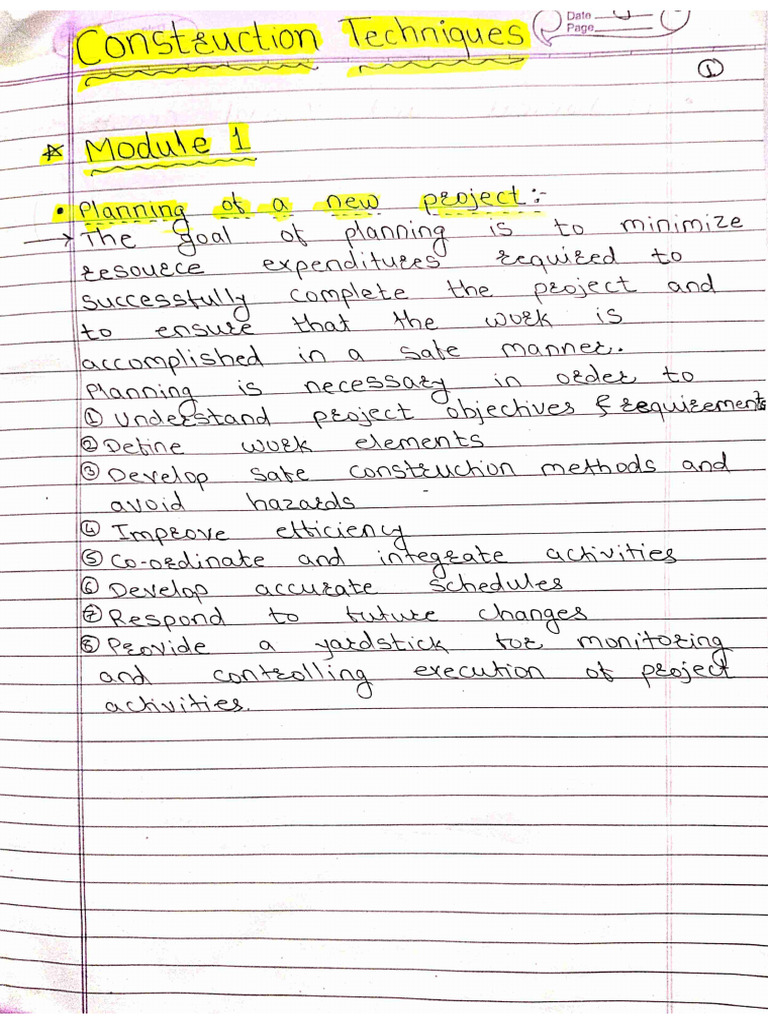 Date
Page
Construction Techniques
①
☆ Module 1
• Planning of a new project :-
→ The goal of planning is to minimize
resource expenditures required to
successfully complete the project and
to ensure that the work is
accomplished in a safe manner.
Planning is necessary in order to
① Understand project objectives & requirements
② Define work elements
③ Develop safe construction methods and
avoid hazards
④ Improve efficiency
⑤ Co-ordinate and integrate activities
⑥ Develop accurate schedules
⑦ Respond to future changes
⑧ Provide a yardstick for monitoring
and controlling execution of project
activities.